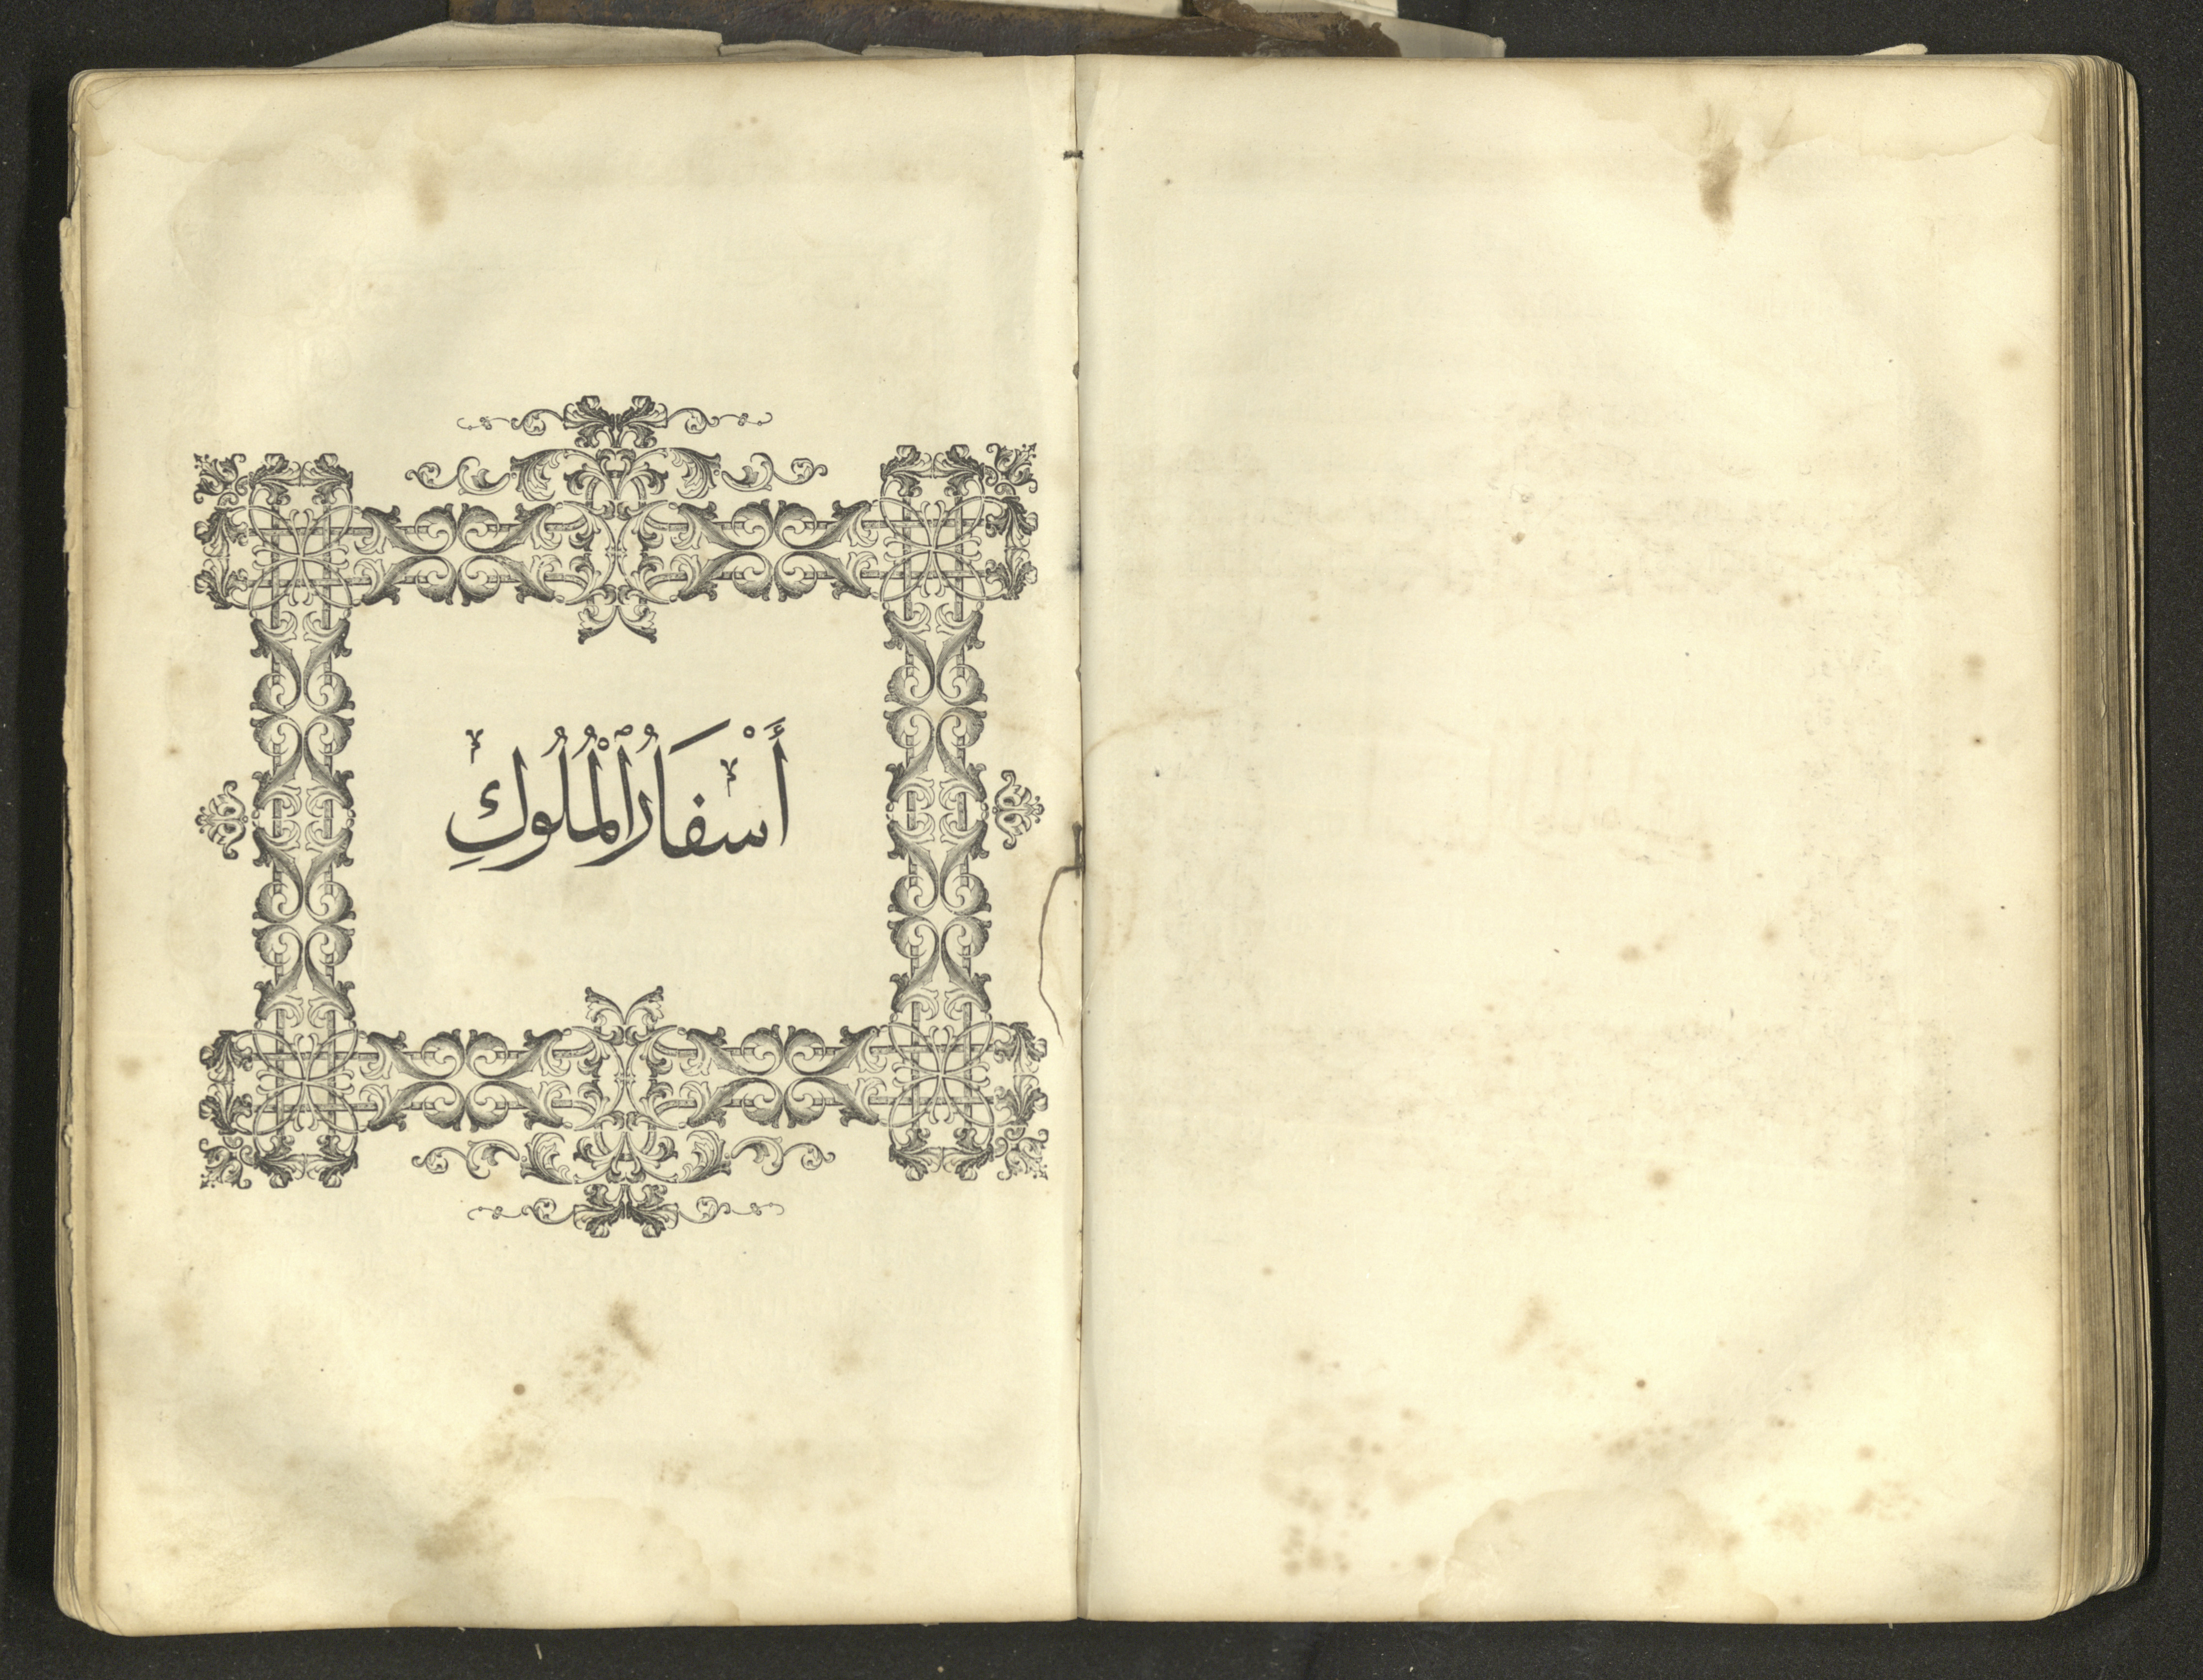 أَسْفَارُ ٱلْمُلُوكِ